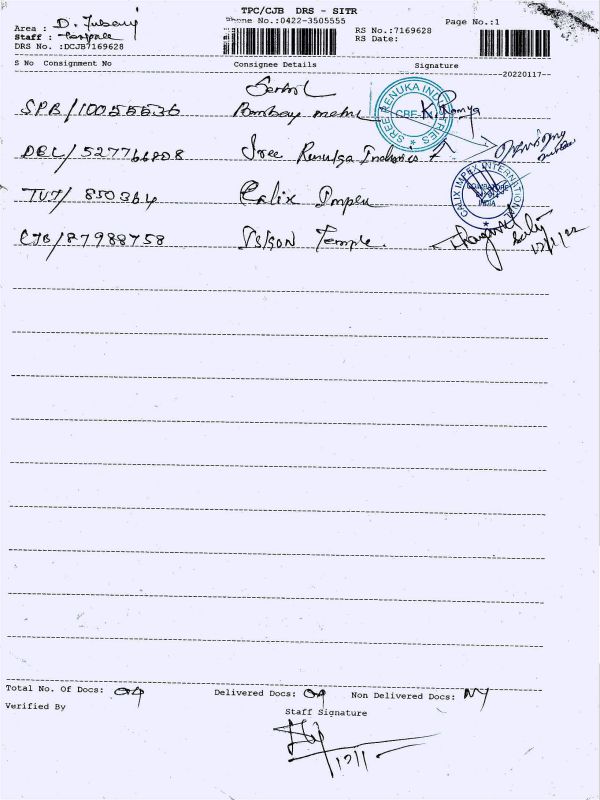 TPC/CJB DRS - SITR
Phone No.:0422-3505555
Page No.:1
Area :
Staff :
DRS No. :DCJB7169628
RS No.:7169628
RS Date:
S No Consignment No Consignee Details Signature
20220117
SPB/10055536 Bombay
SREE RENUKA INDUSTRIES
CBE
K. Ramya
DEL/527766808 Sree Renuka Industries
TUT/850364 Calix Impex
CALIX IMPEX INTERNATIONAL
COIMBATORE
INDIA
CJB/87988758 Temple
17/1/22
Total No. Of Docs: 04 Delivered Docs: 04 Non Delivered Docs:
Verified By
Staff Signature
17/1